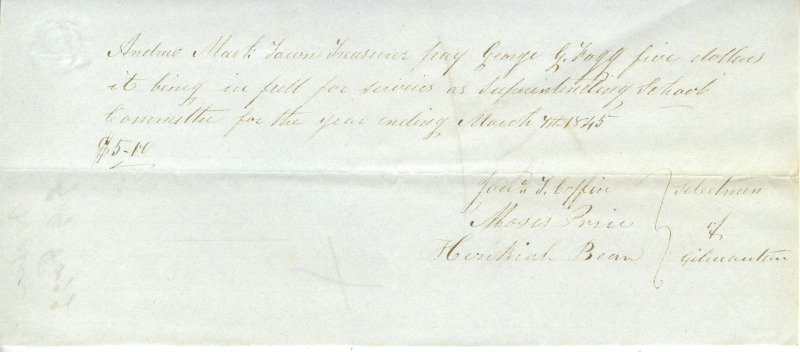 Andrew Mack Town Treasurer pay George G. Fogg five dollars
it being in full for services as Superintending School
Committee for the year ending March 11th 1845
$5-00
Jona T. Coffin
Moses Price
Hezekiah Bean
Selectmen
of
Gilmanton